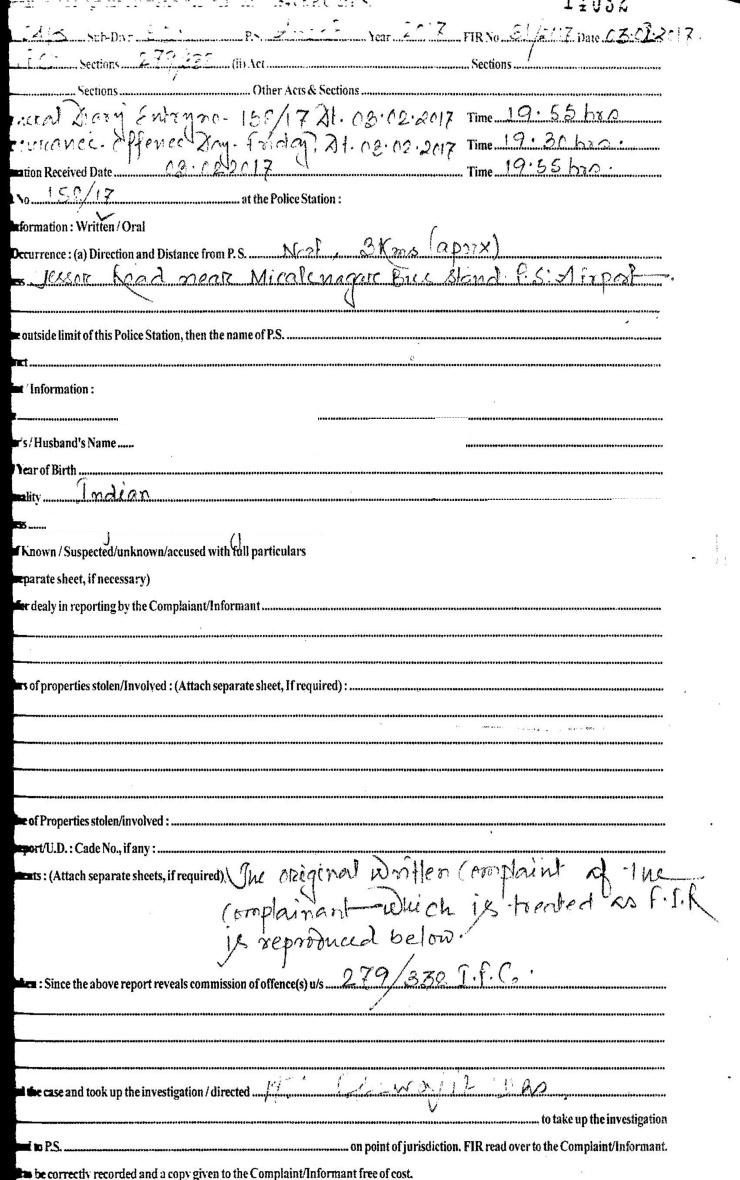 14032
Sub-Div P.S. Year 2017 FIR No. 81/2017 Date 03.02.2017
Sections 279/338 (ii) Act Sections
Sections Other Acts & Sections
Diary Entry no- 158/17 Dt. 03.02.2017 Time 19.55 hrs
Offence Day- Friday, Dt. 03.02.2017 Time 19.30 hrs.
ation Received Date 03.02.2017 Time 19.55 hrs.
No 158/17 at the Police Station :
nformation : Written / Oral
Occurrence : (a) Direction and Distance from P.S. 3 Kms (aprrx)
Jessor Road near Micalenagar Bus Stand P.S. Airport
outside limit of this Police Station, then the name of P.S.
Information :
r's / Husband's Name
Year of Birth
ality Indian
f Known / Suspected/unknown/accused with full particulars
eparate sheet, if necessary)
for dealy in reporting by the Complaiant/Informant
rs of properties stolen/Involved : (Attach separate sheet, If required) :
e of Properties stolen/involved :
eport/U.D. : Cade No., if any :
nts : (Attach separate sheets, if required) The original written complaint of the
complainant which is treated as F.I.R
is reproduced below.
: Since the above report reveals commission of offence(s) u/s 279/338 I.P.C.
d the case and took up the investigation / directed Das
to take up the investigation
to P.S. on point of jurisdiction. FIR read over to the Complaint/Informant.
be correctly recorded and a copy given to the Complaint/Informant free of cost.